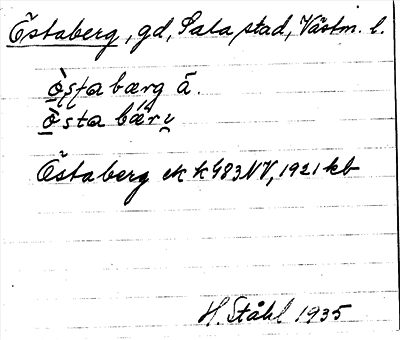 Östaberg, gd, Sala stad, Västm. l.
ò̱stabærg ā.
ò̱sta bǽrj
Östaberg ek k 483 NV, 1921 kb
H. Ståhl 1935